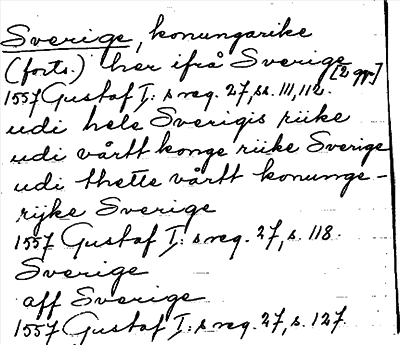 Sverige, konungarike
(forts.) her ifrå Sverige [2 ggr]
1557 Gustaf I: s reg. 27, ss. 111, 112.
udi hele Sverigis riike
udi vårtt konge riike Sverige
udi thette vårtt konunge-
rijke Sverige
1557 Gustaf I: s reg. 27, s. 118.
Sverige
aff Sverige
1557 Gustaf I: s reg. 27, s. 127.